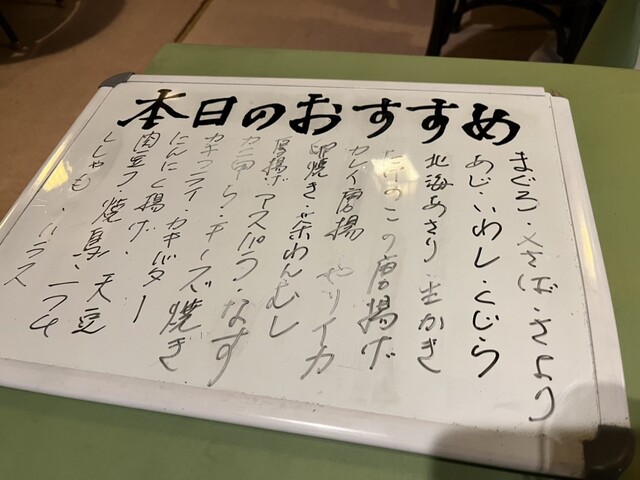 本日のおすすめ
まぐろ・〆さば・さより
あじ・いわし・くじら
北海あさり・生かき
たけのこの唐揚げ
カレイ唐揚 やりイカ
卵焼き・茶わんむし
厚揚げ アスパラ・なす
カニ甲ら・チーズ焼き
カキフライ・カキバター
にんにく揚げ・
肉豆フ・焼鳥・天豆
ししゃも・ハラス